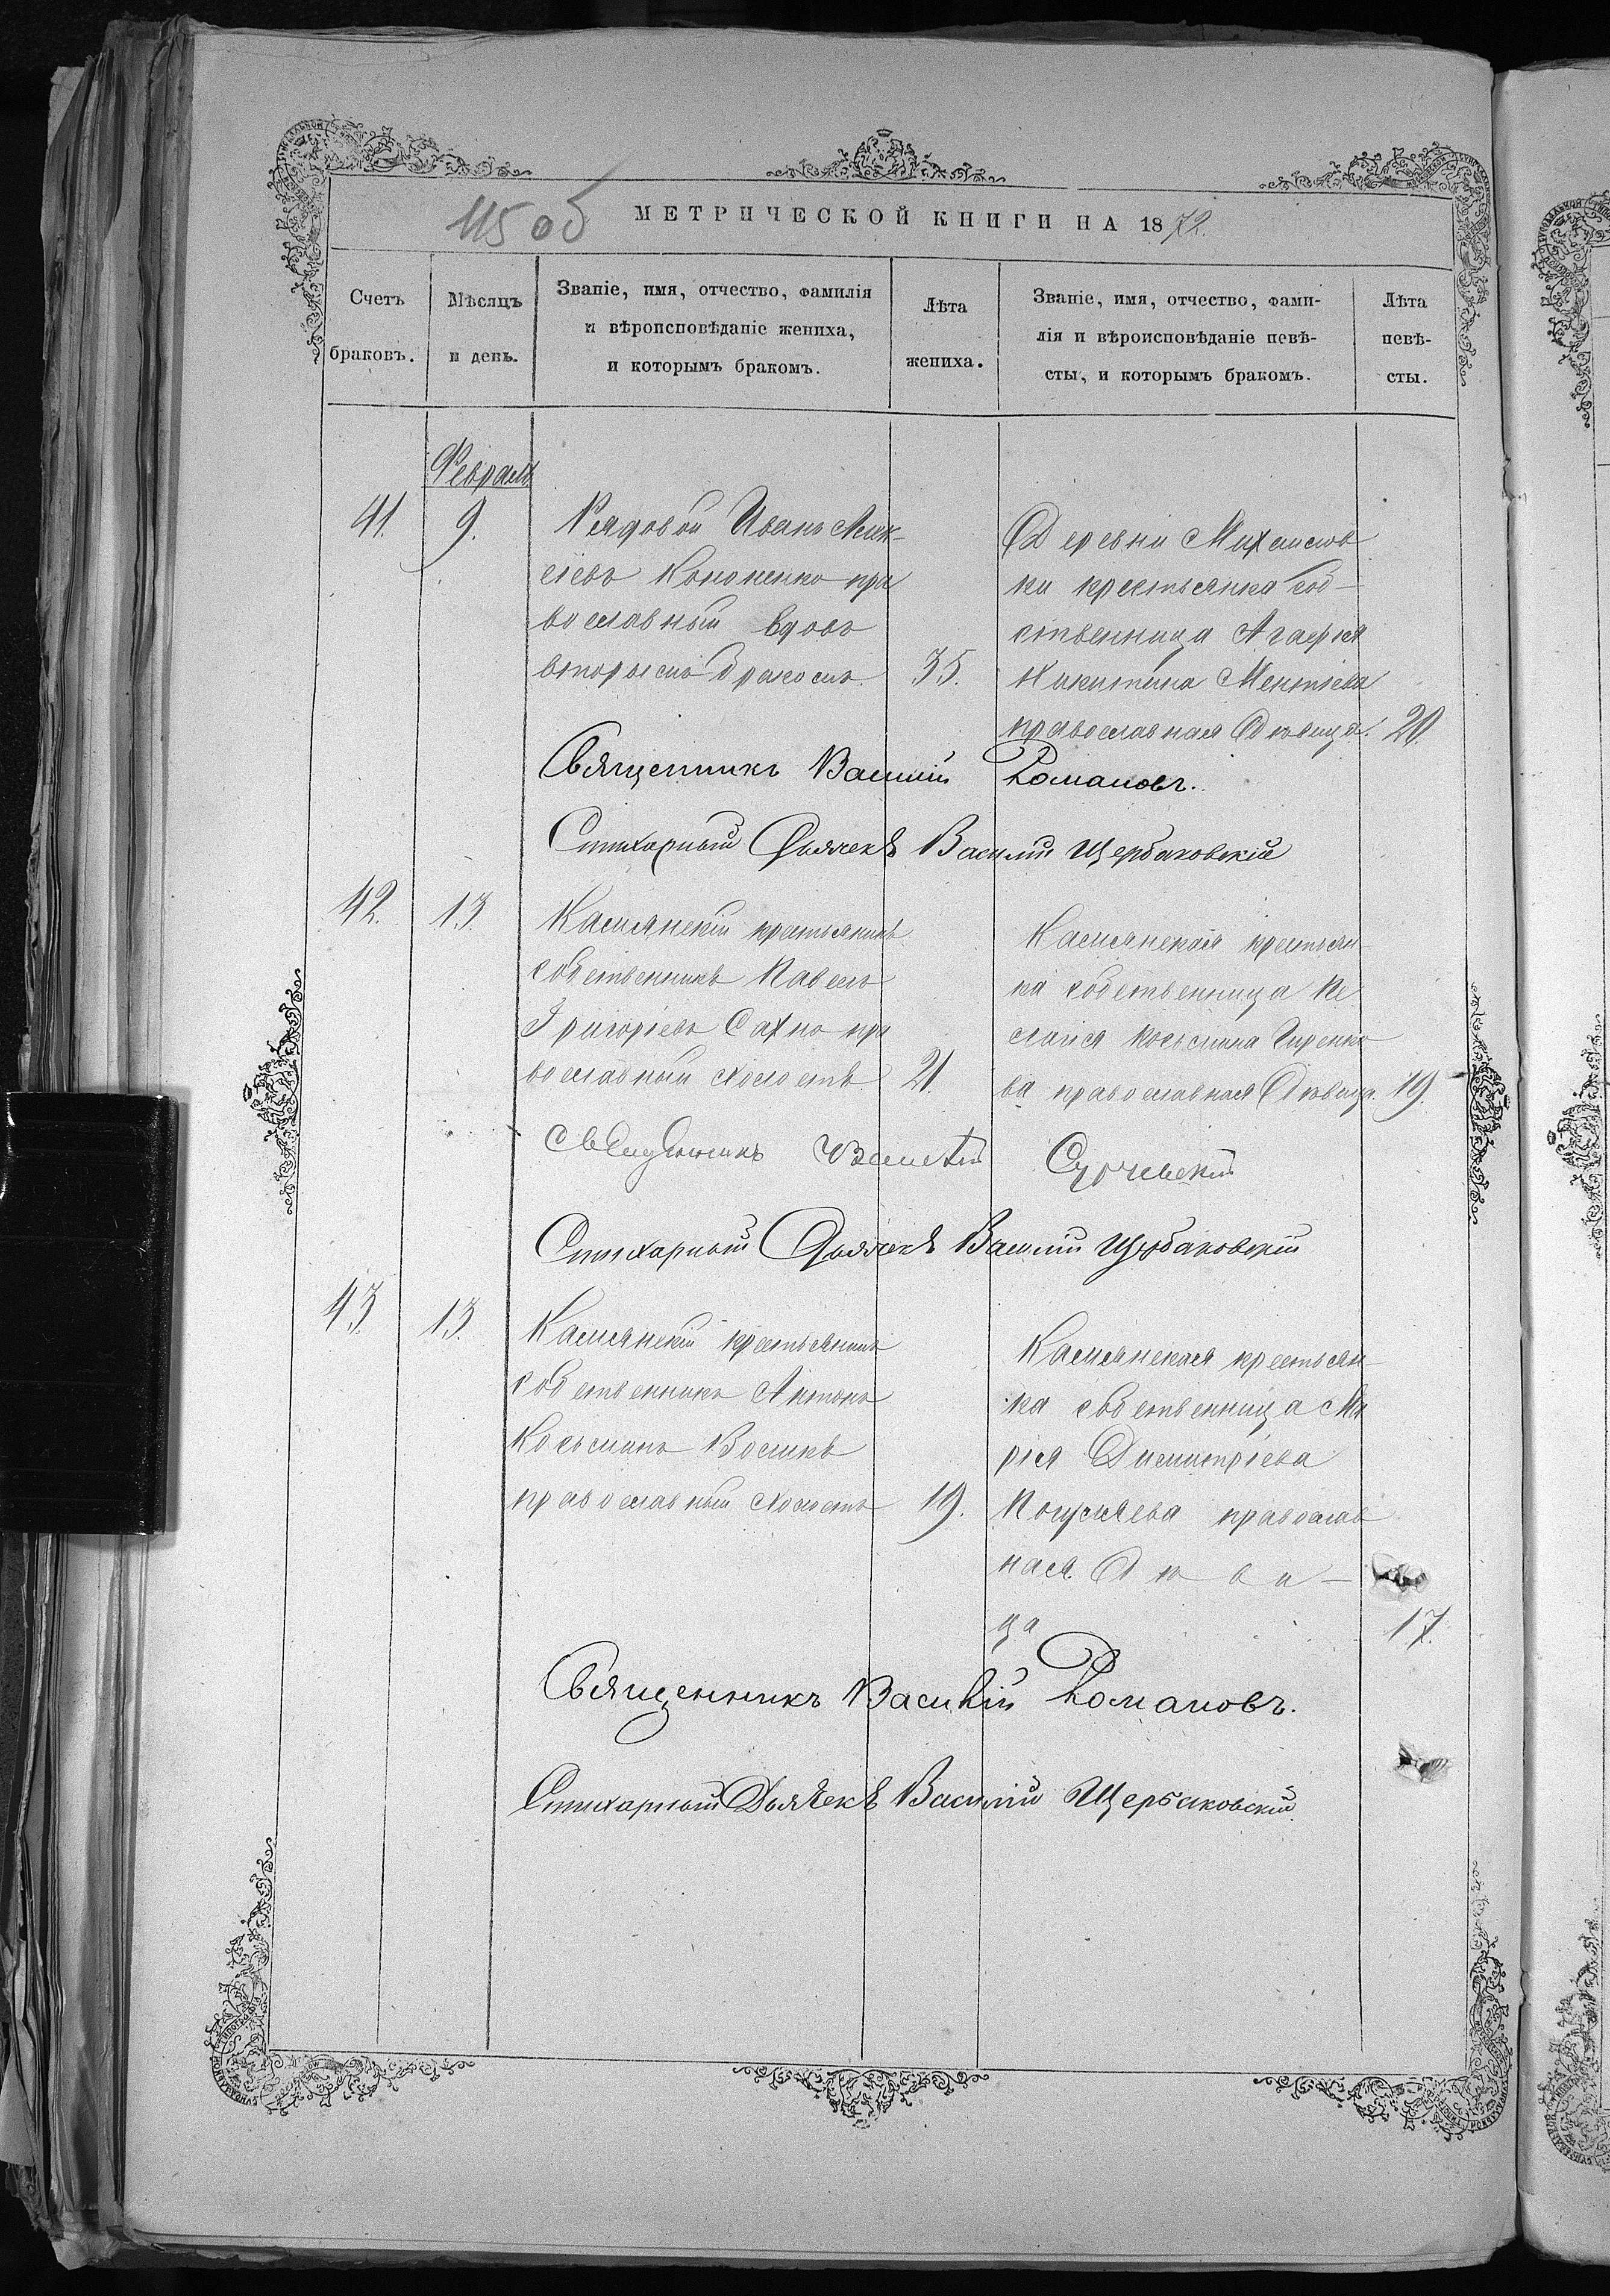 115 об
МЕТРИЧЕСКОЙ КНИГИ НА 1872.
Счетъ браковъ.
Мѣсяцъ и день.
Званіе, имя, отчество, фамилія
и вѣроисповѣданіе жениха,
и которымъ бракомъ.
Лѣта жениха.
Званіе, имя, отчество, фами-
лія и вѣроисповѣданіе невѣ-
сты, и которымъ бракомъ.
Лѣта невѣ-
сты.
Февраль
41. 9.
Рядовой Иванъ
Кононенко пра
вославный вдовъ
вторымъ бракомъ 35.
Деревни Михайлов
ки крестьянка соб-
ственница Агафія
Никитина Ментіева
православная Дѣвица. 20.
Священникъ Василій Романовъ.
Стихарный Дьячекъ Василій Щербаковскій
42. 13.
Камянскій крестьянинъ
собственникъ Павелъ
Григорьевъ Сахно пра
вославный холостъ 21.
Камянская крестьян
ка собственница Пе
лагія Косьмина
ва православная Дѣвица. 19.
Священникъ
Стихарный Дьячекъ Василій Щербаковскій
43. 13.
Камянскій крестьянинъ
собственникъ Антонъ
Косьминъ Воликъ
православный холостъ 19.
Камянская крестьян
ка собственница Ма
рія Димитріева
православ
ная Дѣви-
ца 17.
Священникъ Василій Романовъ.
Стихарный Дьячекъ Василій Щербаковскій.